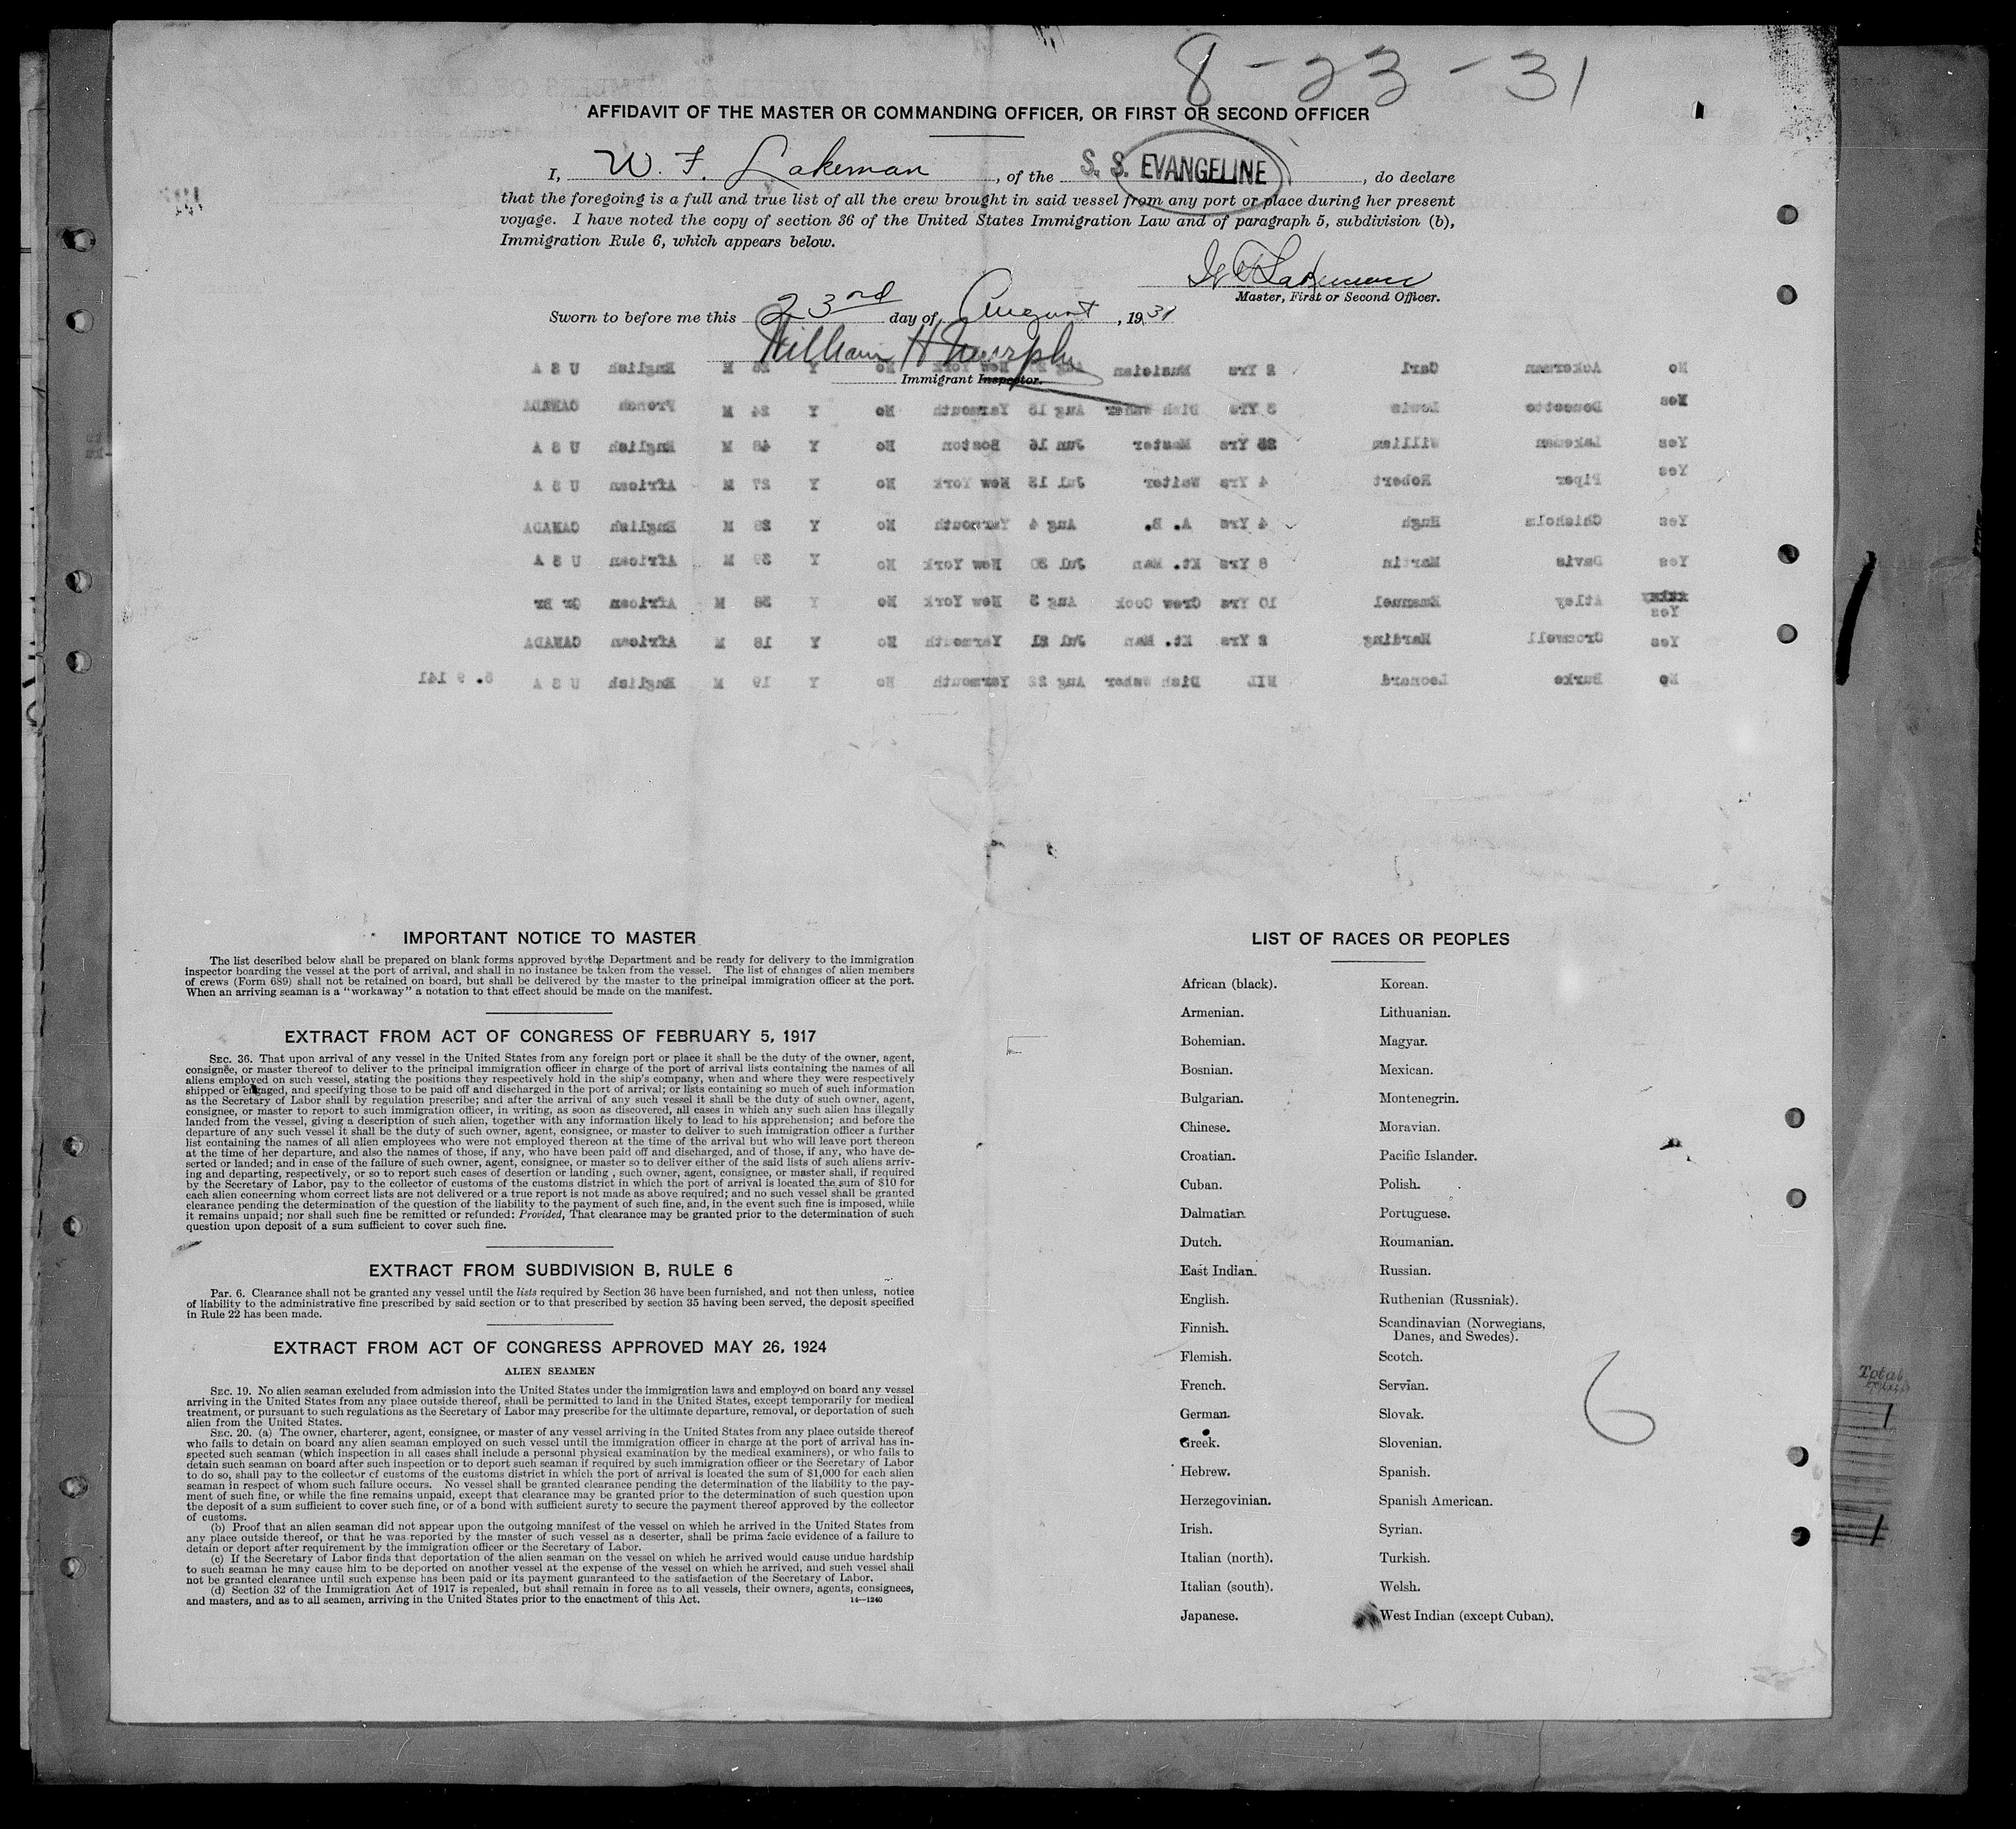 8-23-31
AFFIDAVIT OF THE MASTER OR COMMANDING OFFICER, OR FIRST OR SECOND OFFICER
I, W. F. Lakeman, of the S. S. EVANGELINE, do declare
that the foregoing is a full and true list of all the crew brought in said vessel from any port or place during her present
voyage. I have noted the copy of section 36 of the United States Immigration Law and of paragraph 5, subdivision (b),
Immigration Rule 6, which appears below.
W F Lakeman
Master, First or Second Officer.
Sworn to before me this 23rd day of August, 1931
William H Murphy
Immigrant Inspector.
No Ackerman Carl 2 Yrs Musician Aug New York No Y M English U S A
Yes Doucette Louis 3 Yrs Dish Washer Aug 15 Yarmouth No Y 24 M French CANADA
Yes Lakeman William 25 Yrs Master Jun 16 Boston No Y 48 M English U S A
Yes Piper Robert 4 Yrs Waiter Jul 13 New York No Y 27 M African U S A
Yes Chisholm Hugh 4 Yrs A. B. Aug 4 Yarmouth No Y 28 M English CANADA
Yes Davis Martin 8 Yrs Kt. Man Jul 30 New York No Y 39 M African U S A
Yes Atley Emanuel 10 Yrs Crew Cook Aug 3 New York No Y 38 M African Gr Br
Yes Cromwell Harding 2 Yrs Kt. Man Jul 21 Yarmouth No Y 18 M African CANADA
No Burke Leonard NIL Dish Washer Aug 22 Yarmouth No Y 19 M English U S A 5. 9 141
IMPORTANT NOTICE TO MASTER
The list described below shall be prepared on blank forms approved by the Department and be ready for delivery to the immigration
inspector boarding the vessel at the port of arrival, and shall in no instance be taken from the vessel. The list of changes of alien members
of crews (Form 689) shall not be retained on board, but shall be delivered by the master to the principal immigration officer at the port.
When an arriving seaman is a "workaway" a notation to that effect should be made on the manifest.
EXTRACT FROM ACT OF CONGRESS OF FEBRUARY 5, 1917
SEC. 36. That upon arrival of any vessel in the United States from any foreign port or place it shall be the duty of the owner, agent,
consignee, or master thereof to deliver to the principal immigration officer in charge of the port of arrival lists containing the names of all
aliens employed on such vessel, stating the positions they respectively hold in the ship's company, when and where they were respectively
shipped or engaged, and specifying those to be paid off and discharged in the port of arrival; or lists containing so much of such information
as the Secretary of Labor shall by regulation prescribe; and after the arrival of any such vessel it shall be the duty of such owner, agent,
consignee, or master to report to such immigration officer, in writing, as soon as discovered, all cases in which any such alien has illegally
landed from the vessel, giving a description of such alien, together with any information likely to lead to his apprehension; and before the
departure of any such vessel it shall be the duty of such owner, agent, consignee, or master to deliver to such immigration officer a further
list containing the names of all alien employees who were not employed thereon at the time of the arrival but who will leave port thereon
at the time of her departure, and also the names of those, if any, who have been paid off and discharged, and of those, if any, who have de-
serted or landed; and in case of the failure of such owner, agent, consignee, or master so to deliver either of the said lists of such aliens arriv-
ing and departing, respectively, or so to report such cases of desertion or landing, such owner, agent, consignee, or master shall, if required
by the Secretary of Labor, pay to the collector of customs of the customs district in which the port of arrival is located the sum of $10 for
each alien concerning whom correct lists are not delivered or a true report is not made as above required; and no such vessel shall be granted
clearance pending the determination of the question of the liability to the payment of such fine, and, in the event such fine is imposed, while
it remains unpaid; nor shall such fine be remitted or refunded: Provided, That clearance may be granted prior to the determination of such
question upon deposit of a sum sufficient to cover such fine.
EXTRACT FROM SUBDIVISION B, RULE 6
Par. 6. Clearance shall not be granted any vessel until the lists required by Section 36 have been furnished, and not then unless, notice
of liability to the administrative fine prescribed by said section or to that prescribed by section 35 having been served, the deposit specified
in Rule 22 has been made.
EXTRACT FROM ACT OF CONGRESS APPROVED MAY 26, 1924
ALIEN SEAMEN
SEC. 19. No alien seaman excluded from admission into the United States under the immigration laws and employed on board any vessel
arriving in the United States from any place outside thereof, shall be permitted to land in the United States, except temporarily for medical
treatment, or pursuant to such regulations as the Secretary of Labor may prescribe for the ultimate departure, removal, or deportation of such
alien from the United States.
SEC. 20. (a) The owner, charterer, agent, consignee, or master of any vessel arriving in the United States from any place outside thereof
who fails to detain on board any alien seaman employed on such vessel until the immigration officer in charge at the port of arrival has in-
spected such seaman (which inspection in all cases shall include a personal physical examination by the medical examiners), or who fails to
detain such seaman on board after such inspection or to deport such seaman if required by such immigration officer or the Secretary of Labor
to do so, shall pay to the collector of customs of the customs district in which the port of arrival is located the sum of $1,000 for each alien
seaman in respect of whom such failure occurs. No vessel shall be granted clearance pending the determination of the liability to the pay-
ment of such fine, or while the fine remains unpaid, except that clearance may be granted prior to the determination of such question upon
the deposit of a sum sufficient to cover such fine, or of a bond with sufficient surety to secure the payment thereof approved by the collector
of customs.
(b) Proof that an alien seaman did not appear upon the outgoing manifest of the vessel on which he arrived in the United States from
any place outside thereof, or that he was reported by the master of such vessel as a deserter, shall be prima facie evidence of a failure to
detain or deport after requirement by the immigration officer or the Secretary of Labor.
(c) If the Secretary of Labor finds that deportation of the alien seaman on the vessel on which he arrived would cause undue hardship
to such seaman he may cause him to be deported on another vessel at the expense of the vessel on which he arrived, and such vessel shall
not be granted clearance until such expense has been paid or its payment guaranteed to the satisfaction of the Secretary of Labor.
(d) Section 32 of the Immigration Act of 1917 is repealed, but shall remain in force as to all vessels, their owners, agents, consignees,
and masters, and as to all seamen, arriving in the United States prior to the enactment of this Act.
14—1240
LIST OF RACES OR PEOPLES
African (black).
Armenian.
Bohemian.
Bosnian.
Bulgarian.
Chinese.
Croatian.
Cuban.
Dalmatian.
Dutch.
East Indian.
English.
Finnish.
Flemish.
French.
German.
Greek.
Hebrew.
Herzegovinian.
Irish.
Italian (north).
Italian (south).
Japanese.
Korean.
Lithuanian.
Magyar.
Mexican.
Montenegrin.
Moravian.
Pacific Islander.
Polish.
Portuguese.
Roumanian.
Russian.
Ruthenian (Russniak).
Scandinavian (Norwegians,
Danes, and Swedes).
Scotch.
Servian.
Slovak.
Slovenian.
Spanish.
Spanish American.
Syrian.
Turkish.
Welsh.
West Indian (except Cuban).
6
Total